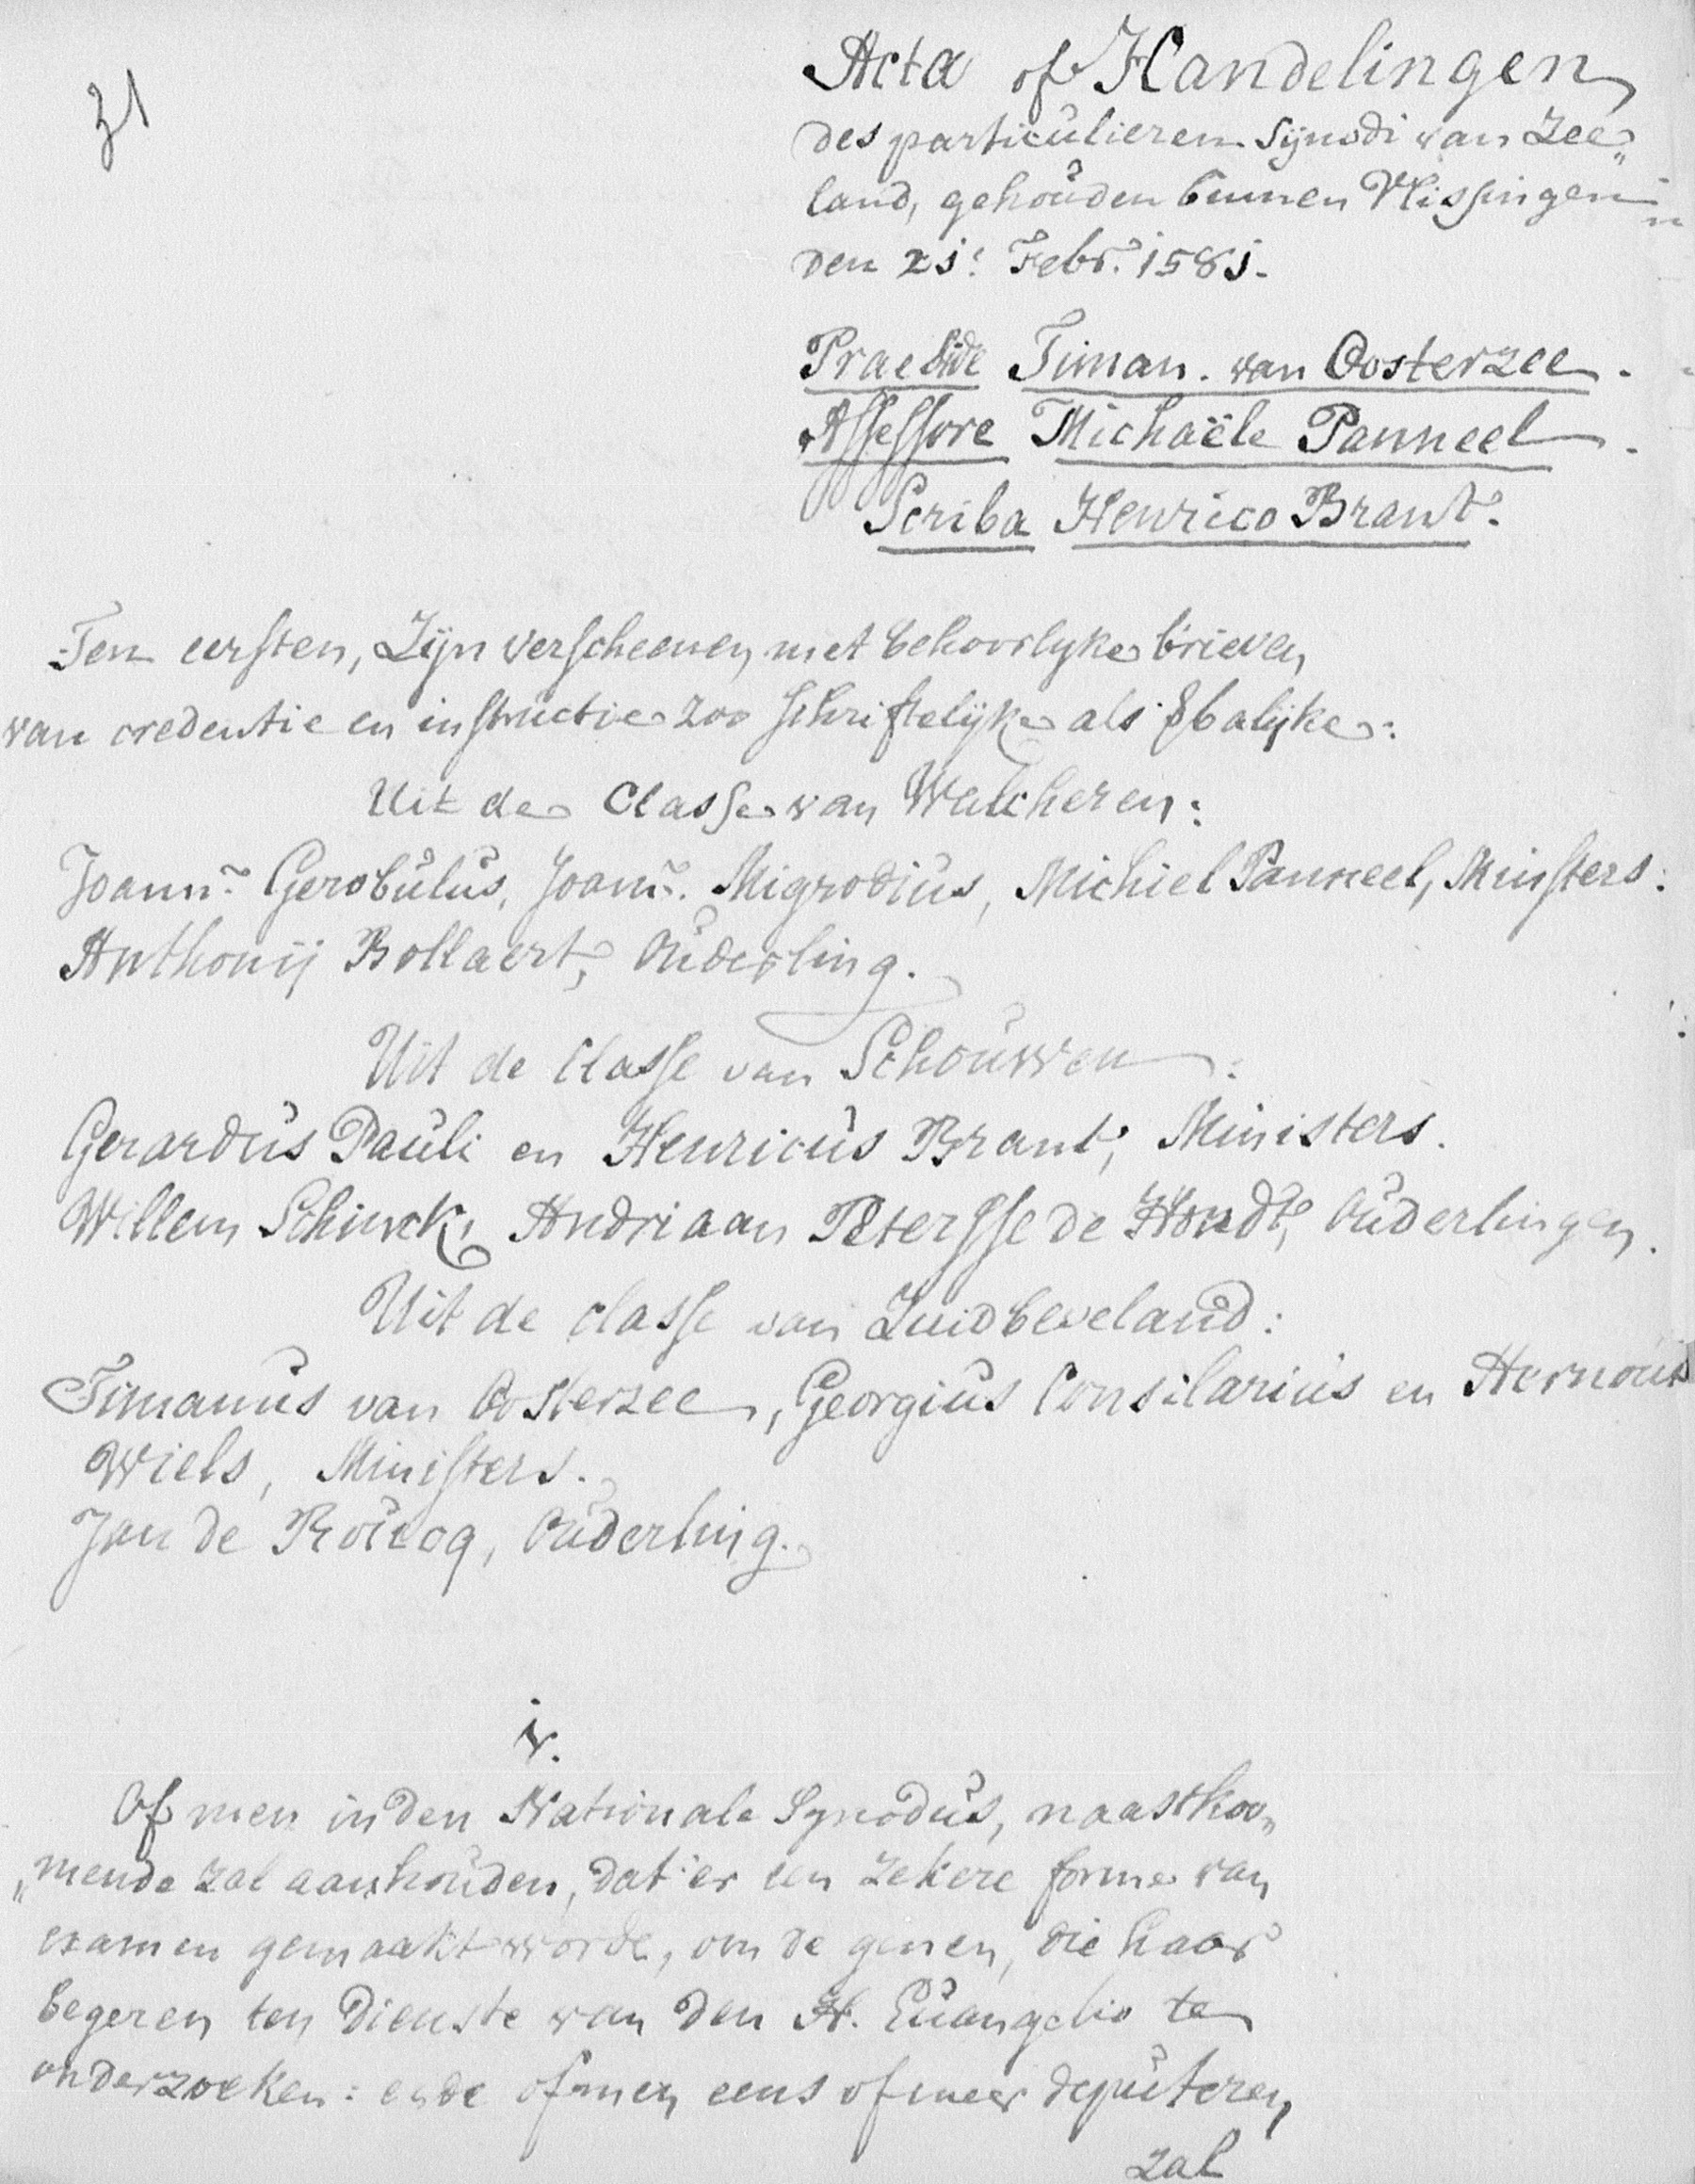 31
Acta of Handelingen
des particulieren Synodi van Zee„
land, gehouden binnen Vlissingen
den 21: Febr. 1581.
Praeside Timan. van Oosterzee.
Assessore Michaële Panneel.
Scriba Henrico Brant.
Ten eersten, Zijn verscheenen met behoorlyke brieven
van credentie en instructie zoo schriftelijke als
Uit de Classe van Walcheren:
Joann. Gerobulus, Joann. Migrodius, Michiel Panneel, Ministers:
Anthonij Bollaert, Ouderling.
Uit de Classe van Schouwen:
Gerardus Pauli en Henricus Brant, Ministers.
Willem Schinck, Andriaan Petersse de Hondt, Ouderlingen.
Uit de classe van Zuidbeveland:
Timanus van Oosterzee, Georgius Consilarius en Hernouts
Wiels, Ministers.
Jan de Roucoq, Ouderling.
Of men in den Nationale Synodus, naastkoo„
„mende zal aanhouden, dat er een zekere forme van
examen gemaakt worde, om de genen, die haar
begeren ten dienste van den H. Euangelio te
onderzoeken: ende of men eens of meer deputeren
zal